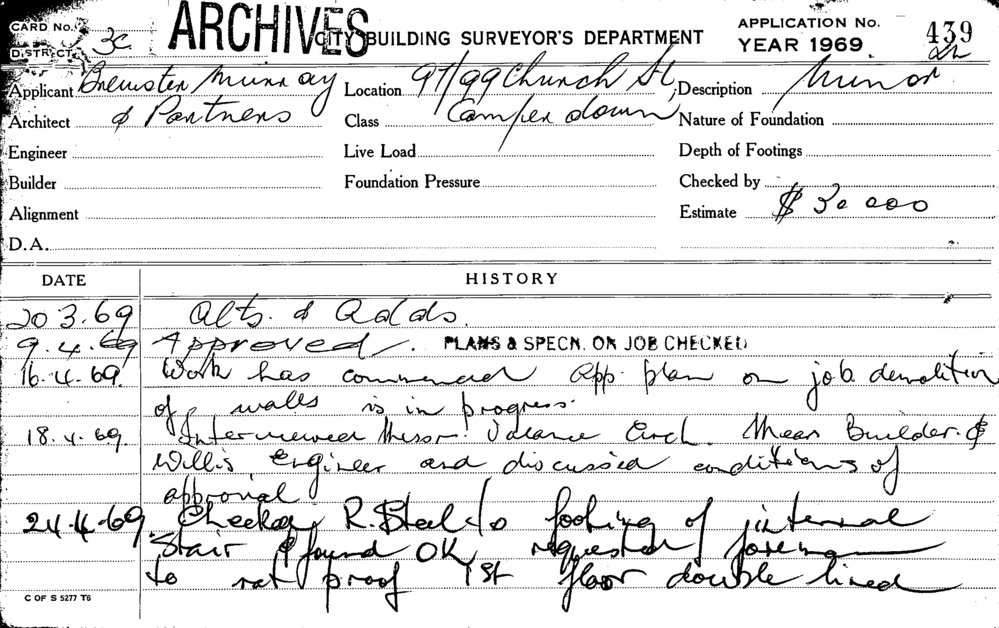 CARD No. ARCHIVES APPLICATION No. 439
DISTRICT 3C CITY BUILDING SURVEYOR'S DEPARTMENT YEAR 1969
Applicant Brewster Murray Location 97/99 Church St, Description Minor
Architect & Partners Class Camperdown Nature of Foundation
Engineer Live Load Depth of Footings
Builder Foundation Pressure Checked by
Alignment Estimate $30 000
D.A.
DATE HISTORY
20 3.69 Alts. & Adds.
9.4.69 Approved. PLANS & SPECN. ON JOB CHECKED
16.4.69. Work has commenced app. plan on job demolition
of walls is in progress.
18.4.69. Interviewed Messr. Arch. Builder &
Willis Engineer and discussed conditions of
approval
24.4.69 Checked R. Steel to footing of internal
Stair & found OK requested foreman
to rat proof 1st floor double lined
C OF S 5277 T6